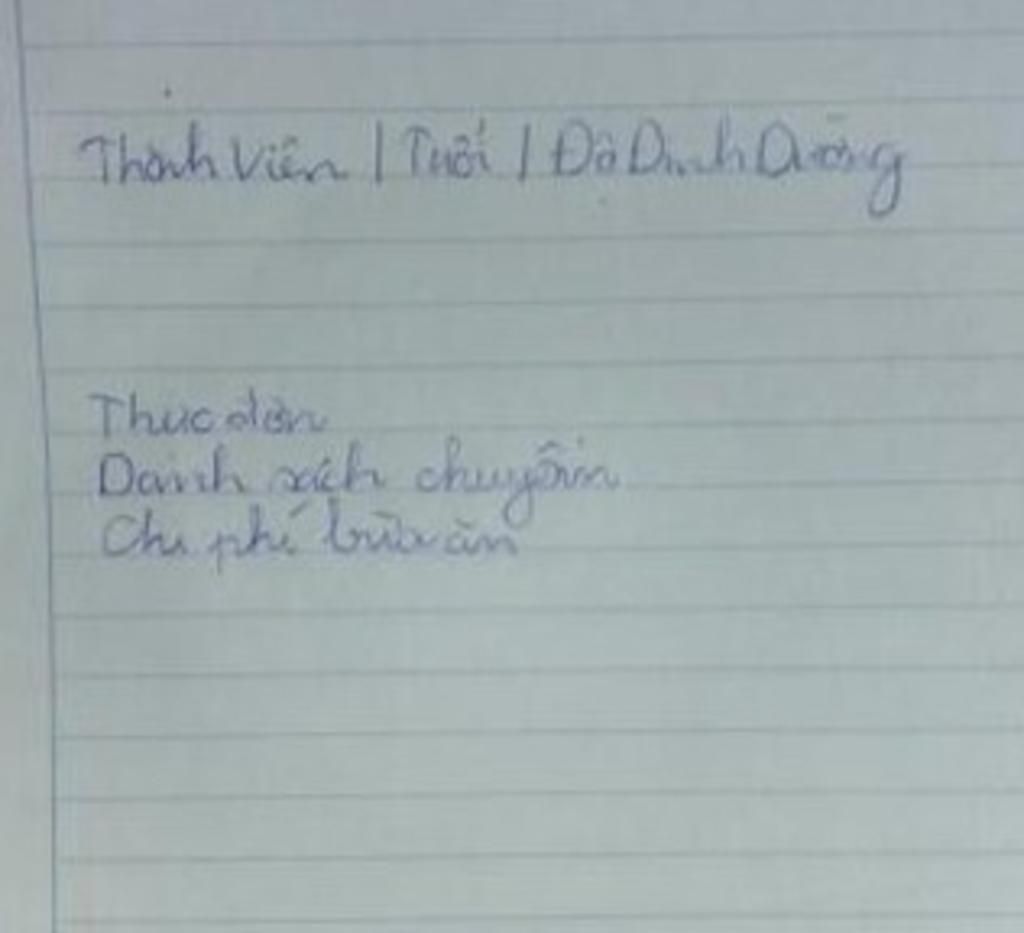 Thành Viên | Tuổi | Độ Dinh Dưỡng
Thực đơn
Danh sách
Chi phí bữa ăn